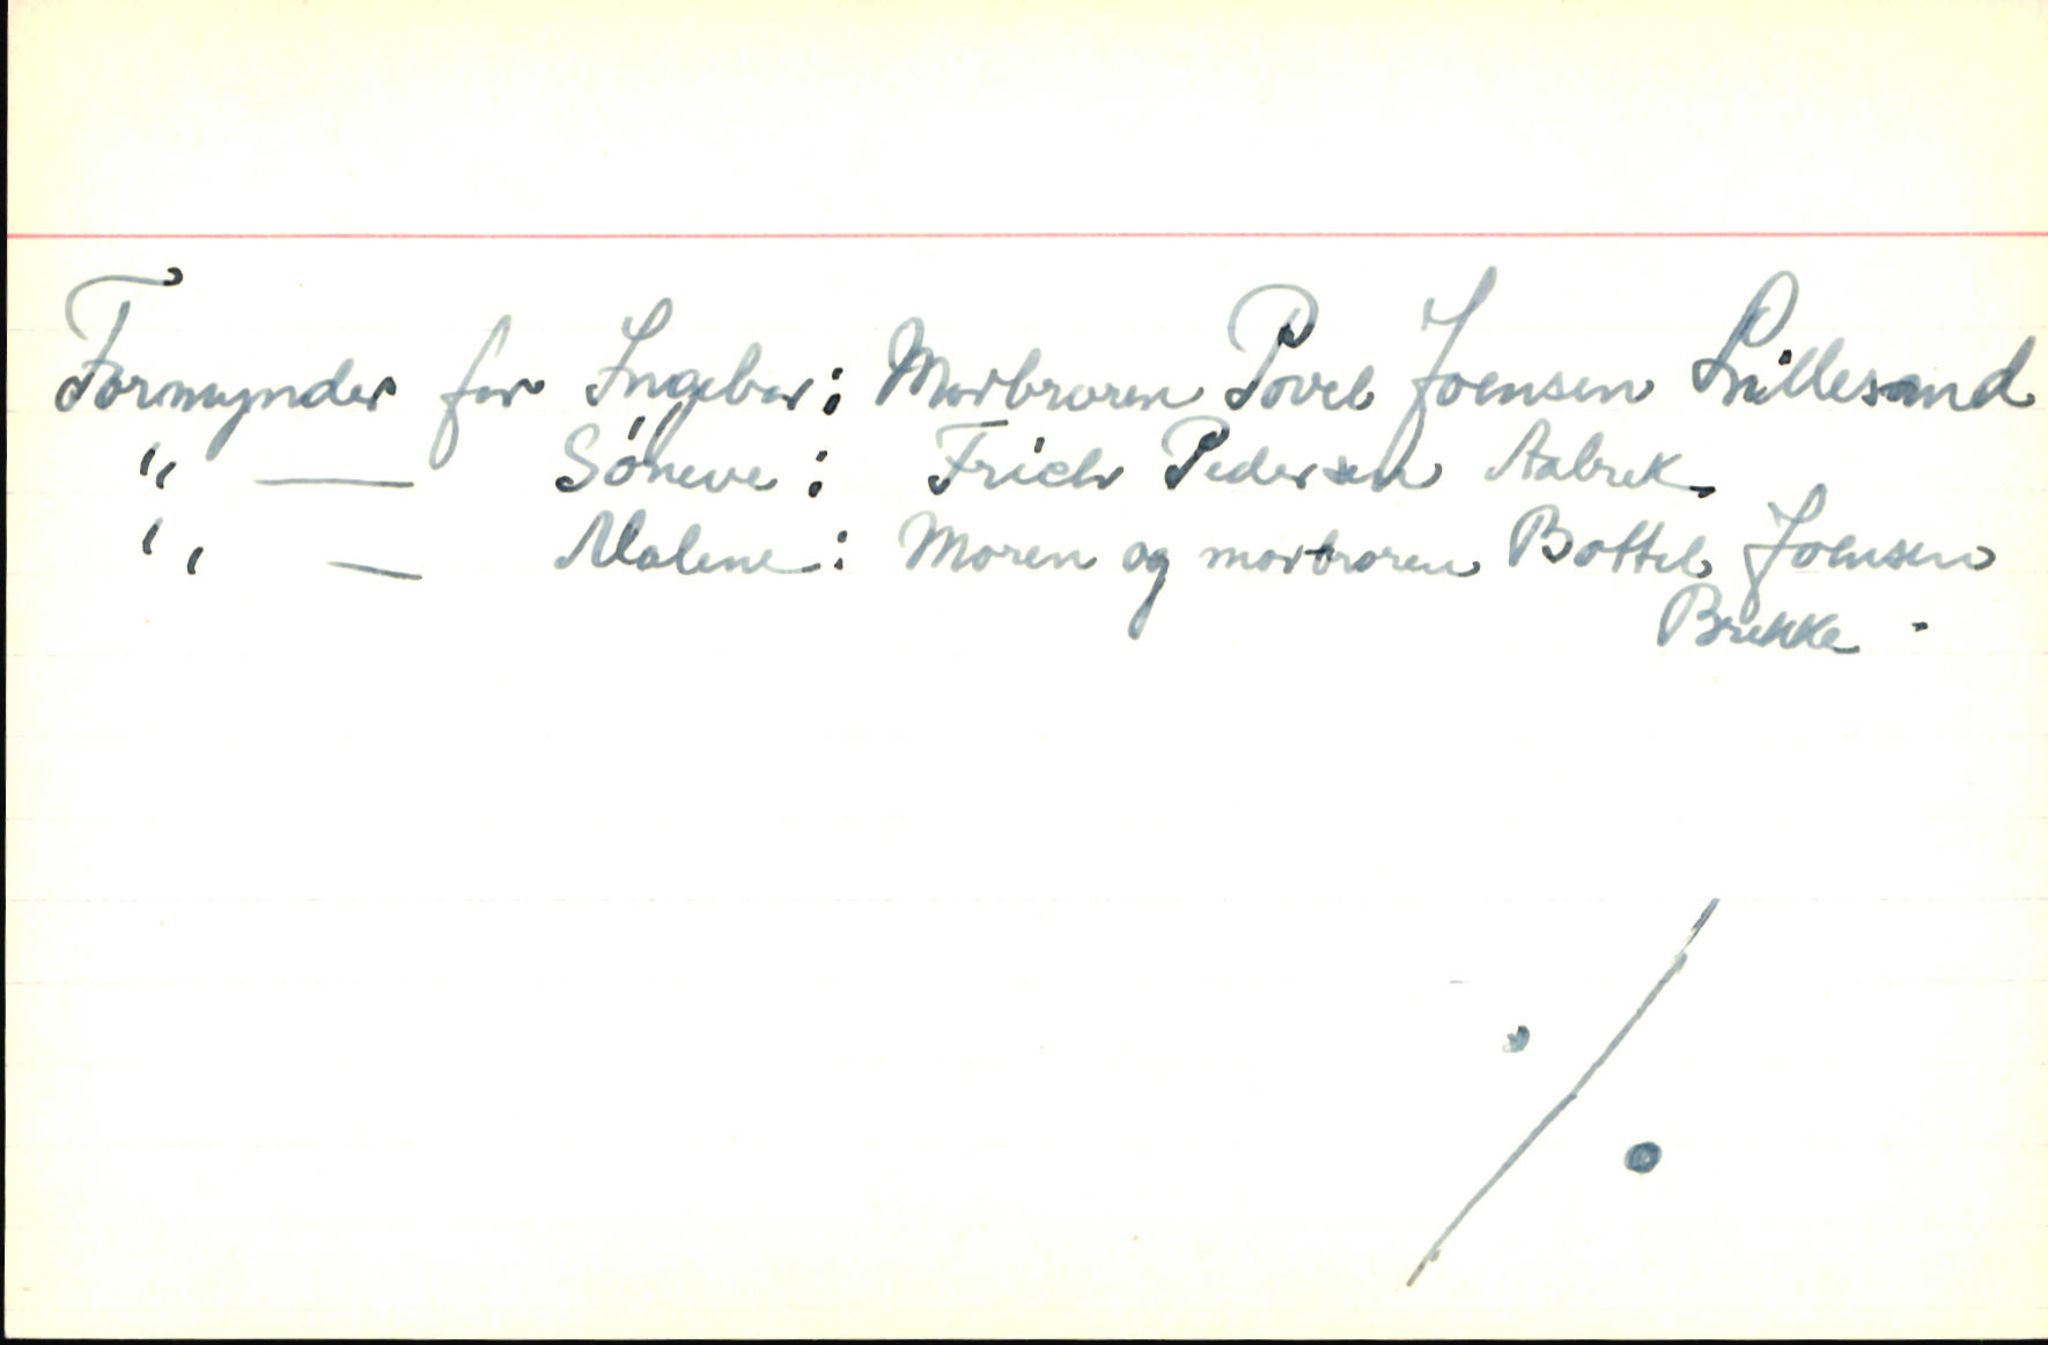 Formynder for Ingebor: Morbroren Povel Joensen Lillesand
" — Söneve: Frich Pedersen Aabrek.
" — Malene: Moren og morbroren Bottel Joensen
Brekke.